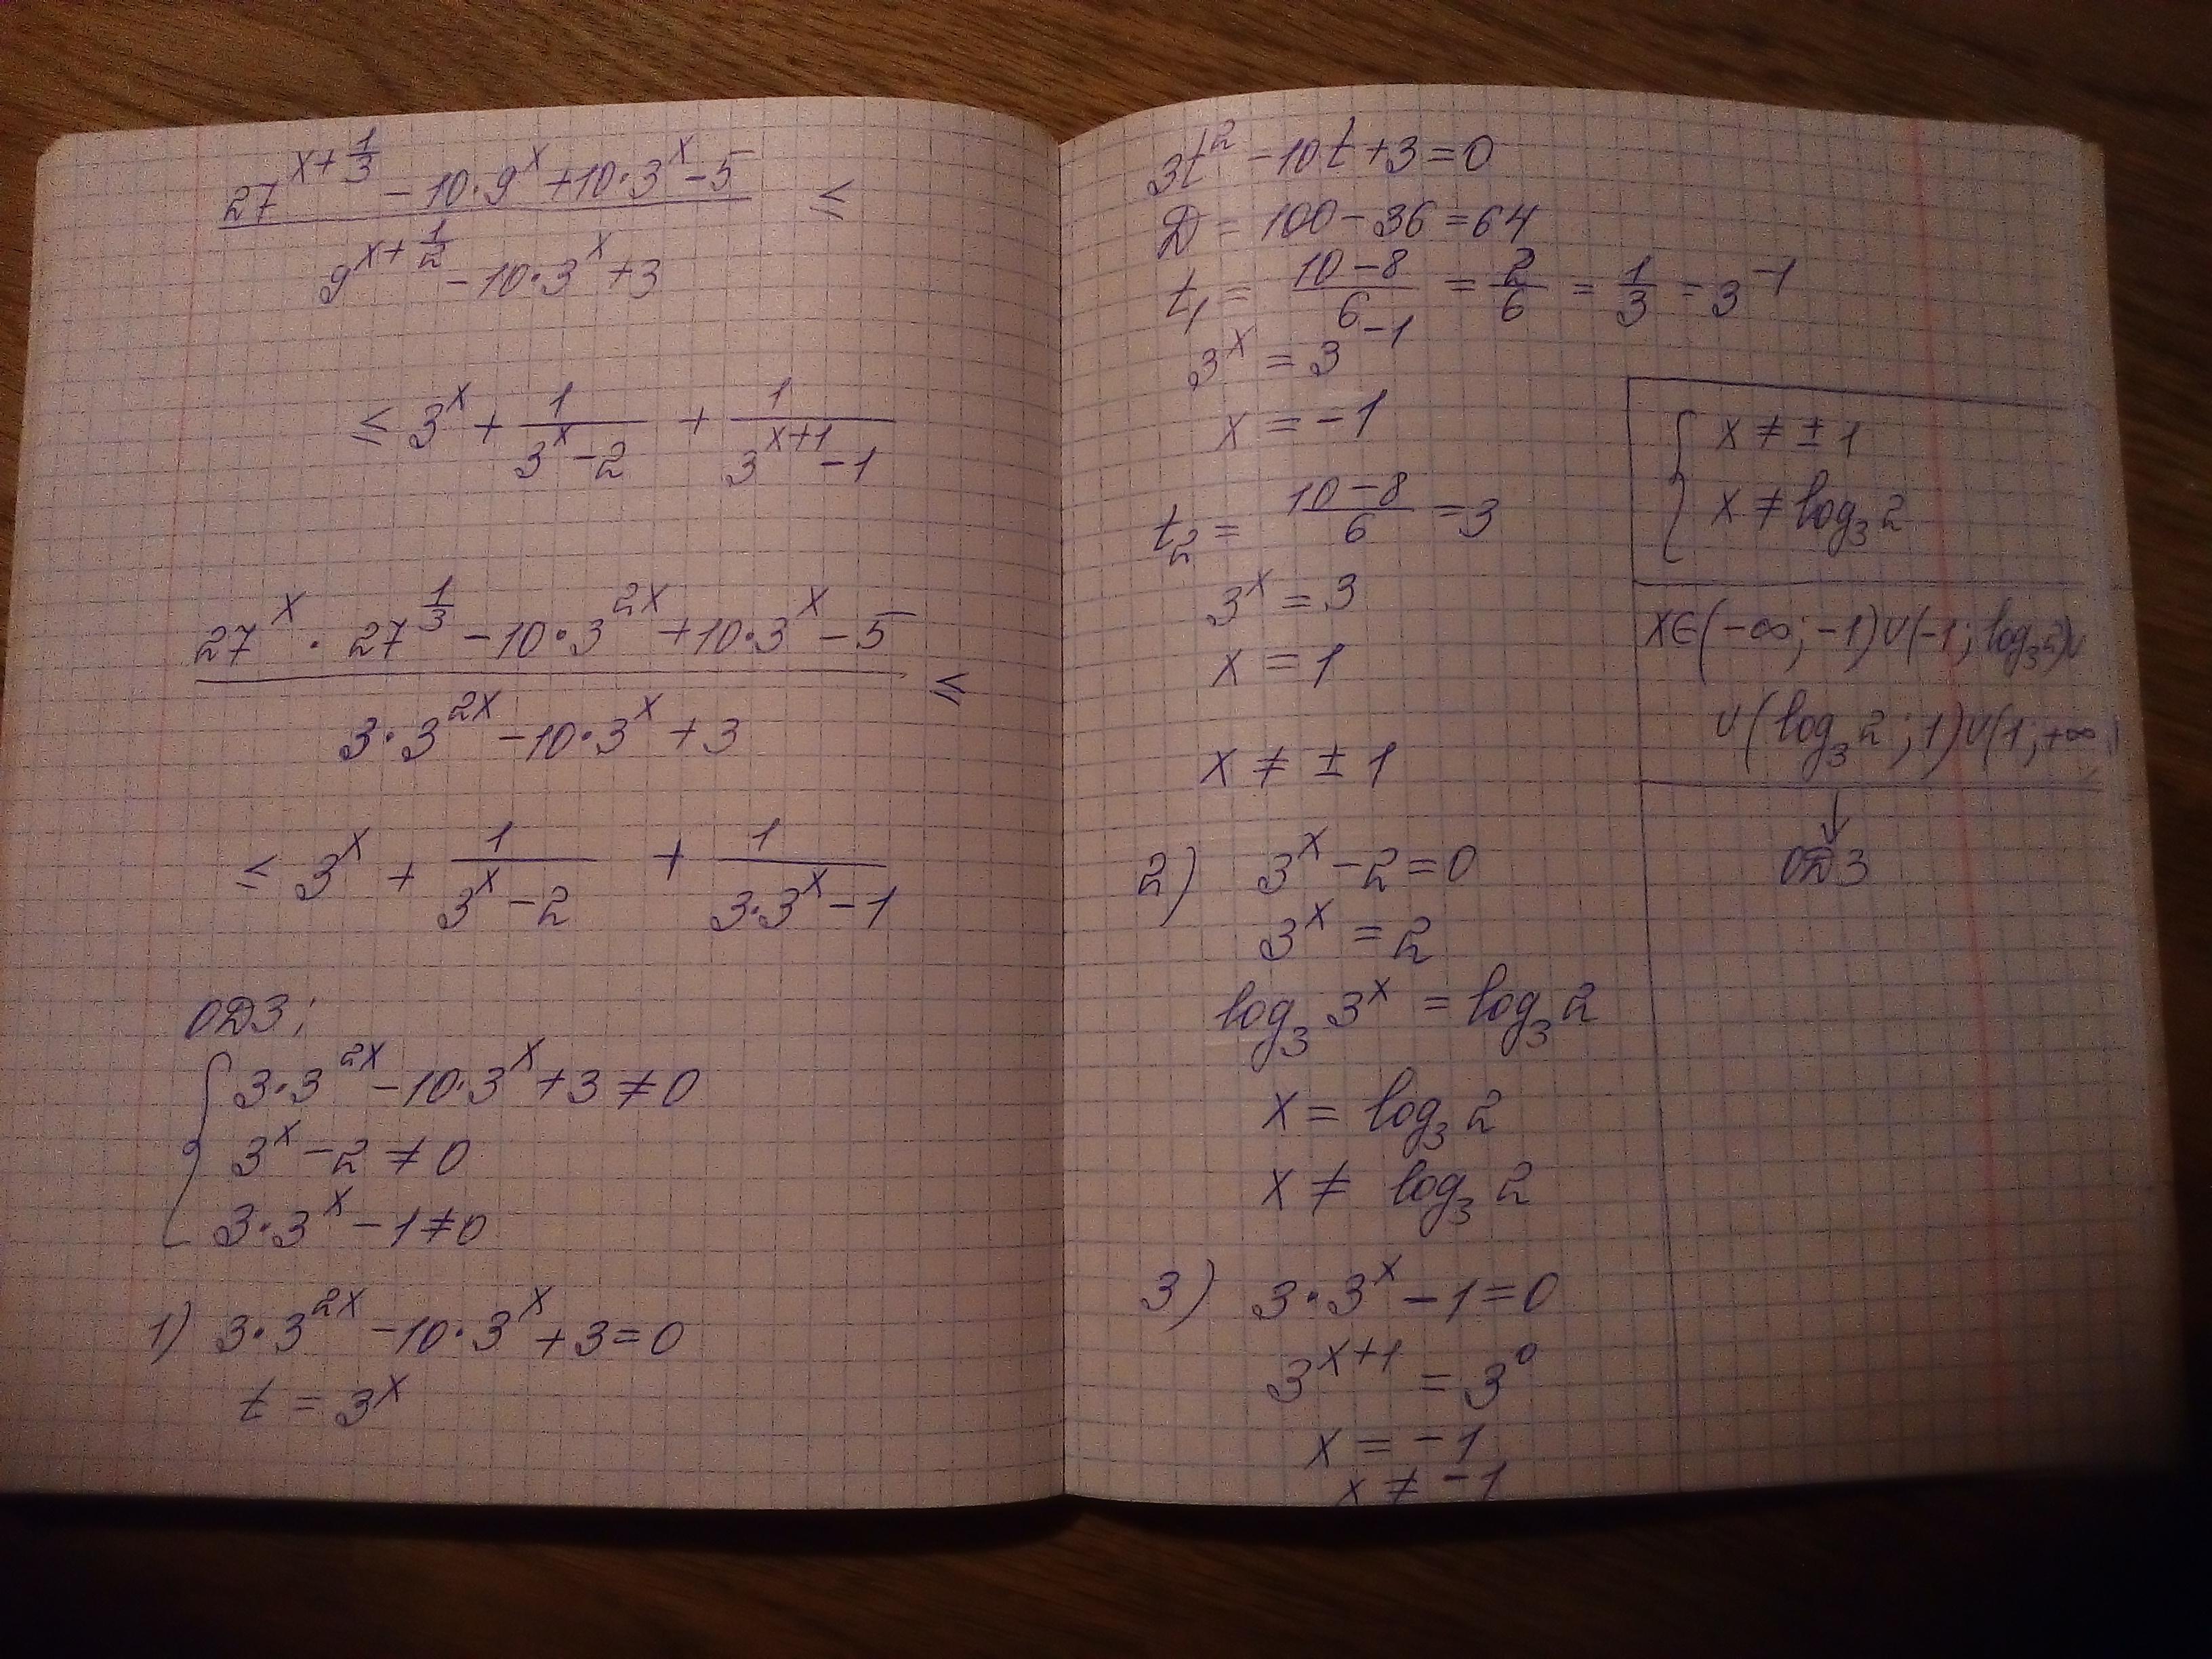 (27^(x+1/3) − 10·9^x + 10·3^x − 5) / (9^(x+1/2) − 10·3^x + 3) ≤
≤ 3^x + 1/(3^x − 2) + 1/(3^(x+1) − 1)
(27^x · 27^(1/3) − 10·3^(2x) + 10·3^x − 5) / (3·3^(2x) − 10·3^x + 3) ≤
≤ 3^x + 1/(3^x − 2) + 1/(3·3^x − 1)
ОДЗ:
{ 3·3^(2x) − 10·3^x + 3 ≠ 0
3^x − 2 ≠ 0
3·3^x − 1 ≠ 0
1) 3·3^(2x) − 10·3^x + 3 = 0
t = 3^x
3t² − 10t + 3 = 0
Д = 100 − 36 = 64
t₁ = (10 − 8)/6 = 2/6 = 1/3 = 3^(−1)
3^x = 3^(−1)
x = −1
t₂ = (10 − 8)/6 = 3
3^x = 3
x = 1
x ≠ ± 1
2) 3^x − 2 = 0
3^x = 2
log₃ 3^x = log₃ 2
x = log₃ 2
x ≠ log₃ 2
3) 3·3^x − 1 = 0
3^(x+1) = 3^0
x = −1
x ≠ −1
{ x ≠ ± 1
x ≠ log₃ 2
x∈(−∞; −1)∪(−1; log₃ 2)∪
∪(log₃ 2; 1)∪(1; +∞)
↓
ОДЗ